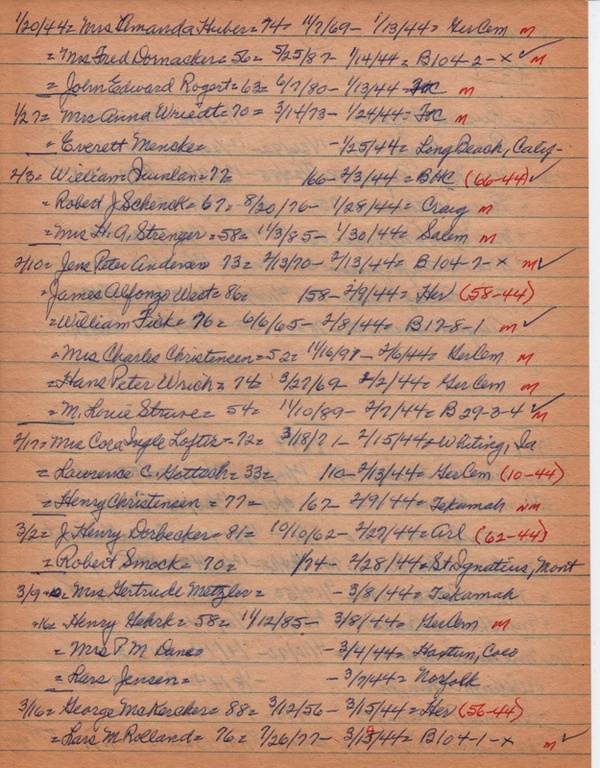 1/20/44= Mrs Amanda Huber= 74= 11/7/69- 1/13/44= GerCem m
= Mrs Fred Dornacker= 56= 5/25/87- 1/14/44= B104-2-x ✓ m
= John Edward Rogert= 63= 6/7/80- 1/13/44 m
1/27= Mrs Anna Wriedt= 70= 3/14/73- 1/24/44= m
= Everett Mencke= -1/25/44= Long Beach, Calif-
2/3= William Quinlan= 77 166- 2/3/44= BHC (66-44) ✓
= Robert J Schenck= 67= 8/20/76- 1/28/44= Craig m
= Mrs H. A. Strenger= 58= 11/3/85- 1/30/44= Salem m
2/10= Jens Peter Andersen 73= 2/13/70- 2/13/44= B104-7-x m ✓
= James Alfonzo West= 86= 158- 2/9/44= Her (58-44)
= William Fick= 76= 6/6/65- 2/8/44= B17-8-1 m ✓
= Mrs Charles Christensen= 52= 11/16/97- 2/6/44= GerCem m
= Hans Peter Wrich= 74= 3/27/69- 2/2/44= GerCem m
= M. Louie Struve= 54= 11/10/89- 2/7/44= B29-3-4 ✓ m
2/17= Mrs Cora Ingle Loftis= 72= 3/18/71- 2/15/44= Whiting, Ia
= Lawrence C. Gottsch= 33= 110- 2/13/44= GerCem (10-44)
= Henry Christensen= 77= 167- 2/9/44= Tekamah nm
3/2= J. Henry Dorbecker= 81= 10/10/62- 2/27/44= Arl (62-44)
= Robert Smock= 70= 174- 2/28/44= St Ignatius, Mont
3/9= Mrs Gertrude Metzler= -3/8/44= Tekamah
Henry Gehrk= 58= 11/12/85- 3/8/44= GerCem m
= Mrs P M Dane= -3/4/44= Haxtun, Colo
= Lars Jensen= -3/7/44= Norfolk
3/16= George McKercher= 88= 3/12/56- 3/15/44= Her (56-44)
= Lars M Rolland= 76= 7/26/77- B104-1-x m ✓